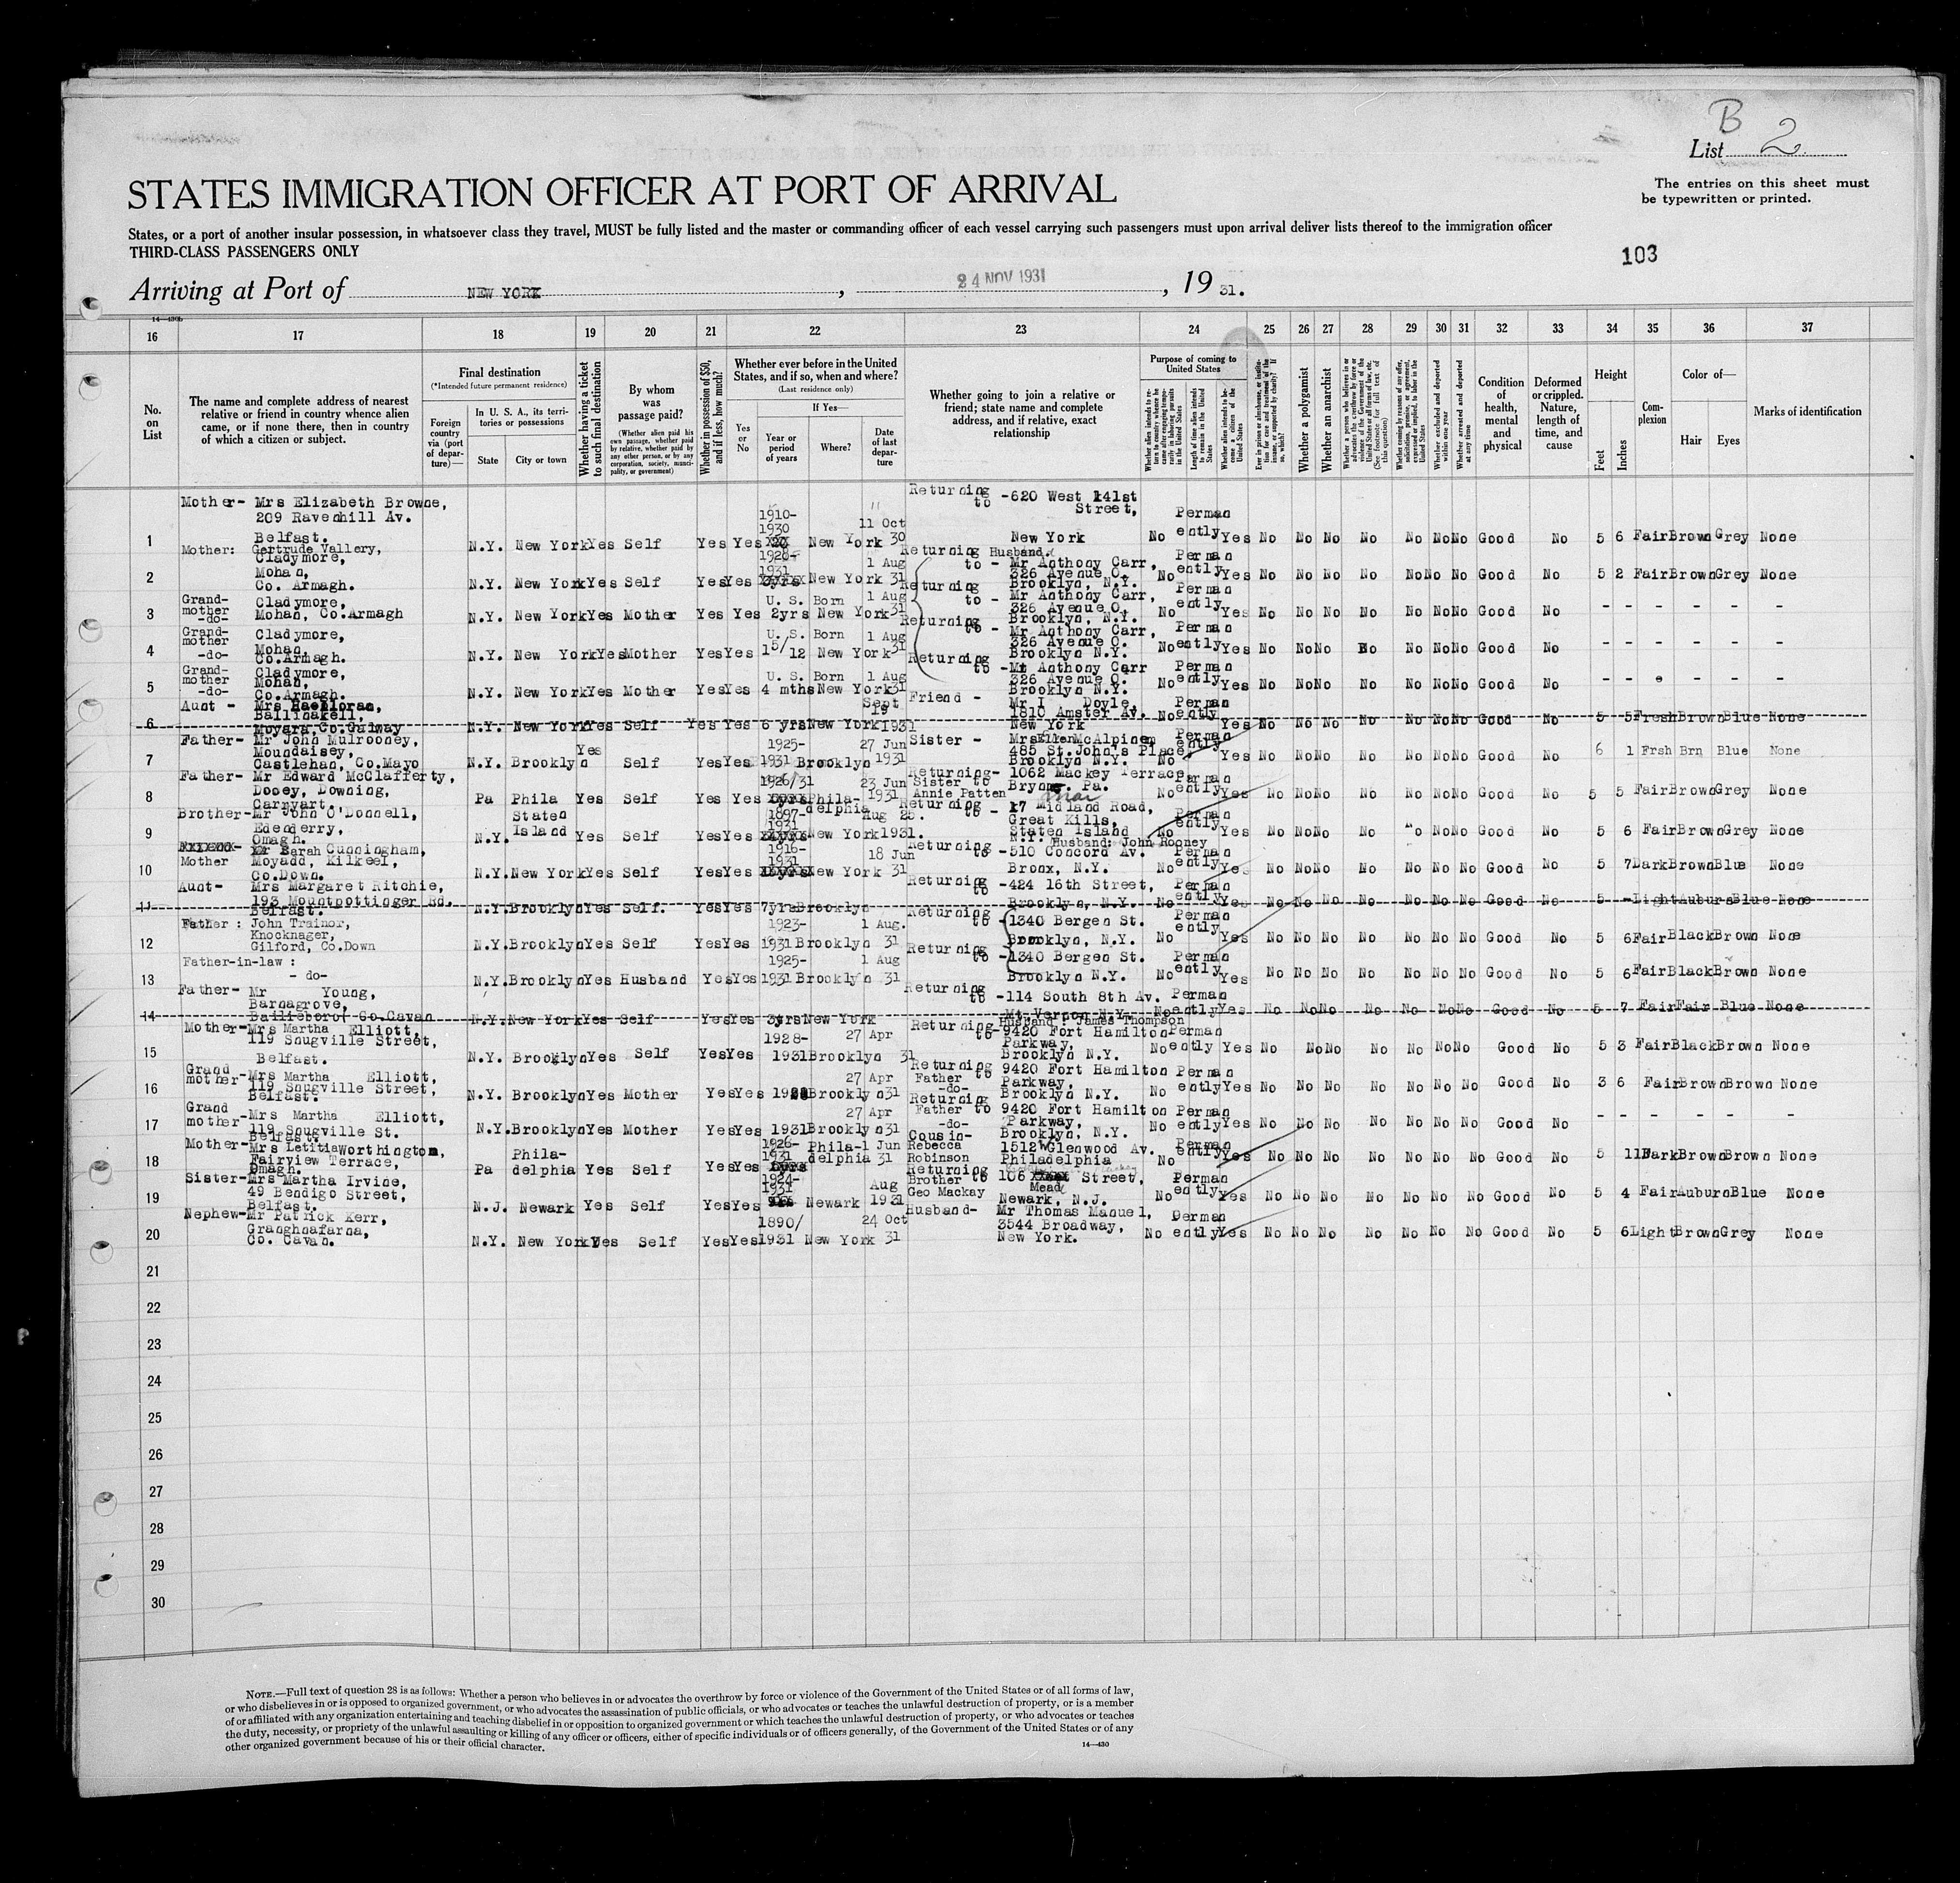 B
List 2
STATES IMMIGRATION OFFICER AT PORT OF ARRIVAL
The entries on this sheet must
be typewritten or printed.
States, or a port of another insular possession, in whatsoever class they travel, MUST be fully listed and the master or commanding officer of each vessel carrying such passengers must upon arrival deliver lists thereof to the immigration officer
THIRD-CLASS PASSENGERS ONLY
103
Arriving at Port of NEW YORK, 24 NOV 1931, 19 31.
16 17 18 19 20 21 22 23 24 25 26 27 28 29 30 31 32 33 34 35 36 37
No. on List
The name and complete address of nearest relative or friend in country whence alien came, or if none there, then in country of which a citizen or subject.
Final destination
(*Intended future permanent residence)
Foreign country via (port of departure)—
In U. S. A., its territories or possessions
State
City or town
Whether having a ticket to such final destination
By whom was passage paid?
(Whether alien paid his own passage, whether paid by relative, whether paid by any other person, or by any corporation, society, municipality, or government)
Whether in possession of $50, and if less, how much?
Whether ever before in the United States, and if so, when and where?
(Last residence only)
Yes or No
If Yes—
Year or period of years
Where?
Date of last departure
Whether going to join a relative or friend; state name and complete address, and if relative, exact relationship
Purpose of coming to United States
Whether alien intends to return to country whence he came after engaging temporarily in laboring pursuits in the United States
Length of time alien intends to remain in the United States
Whether alien intends to become a citizen of the United States
Ever in prison or almshouse, or institution for care and treatment of the insane, or supported by charity? If so, which?
Whether a polygamist
Whether an anarchist
Whether excluded and deported within one year
Whether arrested and deported at any time
Condition of health, mental and physical
Deformed or crippled. Nature, length of time, and cause
Height
Feet
Inches
Complexion
Color of—
Hair
Eyes
Marks of identification
1 Mother- Mrs Elizabeth Browne, 209 Ravenhill Av. Belfast. N.Y. New York Yes Self Yes Yes 1910-1930 New York 11 Oct 30 Returning to -620 West 141st Street, New York No Permanently Yes No No No No No No No Good No 5 6 Fair Brown Grey None
2 Mother: Gertrude Vallery, Cladymore, Mohan, Co. Armagh. N.Y. New York Yes Self Yes Yes 1928-1931 New York 1 Aug 31 Returning to - Husband. Mr Anthony Carr, 326 Avenue O. Brooklyn, N.Y. No Permanently Yes No No No No No No No Good No 5 2 Fair Brown Grey None
3 Grandmother -do- Cladymore, Mohan, Co.Armagh N.Y. New York Yes Mother Yes Yes U. S. Born 2yrs New York 1 Aug 31 Returning to - Mr Anthony Carr, 326 Avenue O. Brooklyn, N.Y. No Permanently Yes No No No No No No No Good No - - - - - -
4 Grandmother -do- Cladymore, Mohan, Co.Armagh. N.Y. New York Yes Mother Yes Yes U. S. Born 1 5/12 New York 1 Aug 31 Returning to - Mr Anthony Carr, 326 Avenue O. Brooklyn N.Y. No Permanently Yes No No No No No No No Good No - - - - - -
5 Grandmother -do- Cladymore, Mohan, Co.Armagh. N.Y. New York Yes Mother Yes Yes U. S. Born 4 mths New York 1 Aug 31 Returning to - Mr Anthony Carr 326 Avenue O. Brooklyn N.Y. No Permanently Yes No No No No No No No Good No - - - - - -
6 Aunt - Mrs Ballinakell, Moyard, Co.Galway N.Y. New York Yes Self Yes Yes 6 yrs New York Sept 19 1931 Friend - Mr I Doyle, 1810 Amster Av. New York No Permanently Yes No No No No No No No Good No 5 5 Fresh Brown Blue None
7 Father- Mr John Mulrooney, Moundaisey, Castlehan, Co.Mayo N.Y. Brooklyn Yes Self Yes Yes 1925-1931 Brooklyn 27 Jun 1931 Sister - Mrs Ellen McAlpinen 485 St.John's Place, Brooklyn N.Y. No Permanently Yes No No No No No No No Good No 6 1 Frsh Brn Blue None
8 Father- Mr Edward McClafferty, Dooey, Downing, Carryart. Pa Phila Yes Self Yes Yes 1926/31 Philadelphia 23 Jun 1931 Returning- Sister to Annie Patten 1062 Mackey Terrace, Bryn Mar Pa. No Permanently Yes No No No No No No No Good No 5 5 Fair Brown Grey None
9 Brother- Mr John O'Donnell, Edenderry, Omagh. N.Y. Staten Island Yes Self Yes Yes 1897-1931 New York Aug 28. 1931. Returning to - 17 Midland Road, Great Kills, Staten Island N.Y. No Permanently Yes No No No No No No No Good No 5 6 Fair Brown Grey None
10 Mother Sarah Cunningham, Moyadd, Kilkeel, Co.Down. N.Y. New York Yes Self Yes Yes 1916-1931 New York 18 Jun 31 Returning to Husband: John Rooney -510 Concord Av. Bronx, N.Y. No Permanently Yes No No No No No No No Good No 5 7 Dark Brown Blue None
11 Aunt- Mrs Margaret Ritchie, 193 Mountpottinger Rd. Belfast. N.Y. Brooklyn Yes Self. Yes Yes 7yrs Brooklyn Returning to -424 16th Street, Brooklyn, N.Y. No Permanently Yes No No No No No No No Good No 5 - Light Auburn Blue None
12 Father: John Trainor, Knocknager, Gilford, Co.Down N.Y. Brooklyn Yes Self Yes Yes 1923-1931 Brooklyn 1 Aug. 31 Returning to -1340 Bergen St. Brooklyn, N.Y. No Permanently Yes No No No No No No No Good No 5 6 Fair Black Brown None
13 Father-in-law: - do- N.Y. Brooklyn Yes Husband Yes Yes 1925-1931 Brooklyn 1 Aug 31 Returning to -1340 Bergen St. Brooklyn N.Y. No Permanently Yes No No No No No No No Good No 5 6 Fair Black Brown None
14 Father- Mr Young, Barnagrove, Bailieboro' Co.Cavan N.Y. New York Yes Self Yes Yes 3yrs New York Returning to -114 South 8th Av. Mt Vernon N.Y. No Permanently Yes No No No No No No No Good No 5 7 Fair Fair Blue None
15 Mother- Mrs Martha Elliott, 119 Snugville Street, Belfast. N.Y. Brooklyn Yes Self Yes Yes 1928-1931 Brooklyn 27 Apr 31 Returning to Husband: James Thompson 9420 Fort Hamilton Parkway, Brooklyn N.Y. No Permanently Yes No No No No No No No Good No 5 3 Fair Black Brown None
16 Grandmother- Mrs Martha Elliott, 119 Snugville Street, Belfast. N.Y. Brooklyn Yes Mother Yes Yes Brooklyn 27 Apr 31 Returning to Father -do- 9420 Fort Hamilton Parkway, Brooklyn N.Y. No Permanently Yes No No No No No No No Good No 3 6 Fair Brown Brown None
17 Grandmother- Mrs Martha Elliott, 119 Snugville St. Belfast. N.Y. Brooklyn Yes Mother Yes Yes 1931 Brooklyn 27 Apr 31 Returning Father to -do- 9420 Fort Hamilton Parkway, Brooklyn, N.Y. No Permanently Yes No No No No No No No Good No - - - - - -
18 Mother- Mrs Letitia Worthington, Fairview Terrace, Omagh. Pa Philadelphia Yes Self Yes Yes 1926-1931 Philadelphia 1 Jun 31 Cousin- Rebecca Robinson 1512 W Glenwood Av. Philadelphia No Permanently Yes No No No No No No No Good No 5 11 Dark Brown Brown None
19 Sister- Mrs Martha Irvine, 49 Bendigo Street, Belfast. N.J. Newark Yes Self Yes Yes 1924-1931 Newark Aug 1931 Returning to Brother Geo Mackay 106 Mead Street, Newark, N.J. No Permanently Yes No No No No No No No Good No 5 4 Fair Auburn Blue None
20 Nephew- Mr Patrick Kerr, Granghnafarna, Co. Cavan. N.Y. New York Yes Self Yes Yes 1890/1931 New York 24 Oct 31 Husband- Mr Thomas Manuel, 3544 Broadway, New York. No Permanently Yes No No No No No No No Good No 5 6 Light Brown Grey None
21
22
23
24
25
26
27
28
29
30
NOTE.—Full text of question 28 is as follows: Whether a person who believes in or advocates the overthrow by force or violence of the Government of the United States or of all forms of law,
or who disbelieves in or is opposed to organized government, or who advocates the assassination of public officials, or who advocates or teaches the unlawful destruction of property, or is a member
of or affiliated with any organization entertaining and teaching disbelief in or opposition to organized government or which teaches the unlawful destruction of property, or who advocates or teaches
the duty, necessity, or propriety of the unlawful assaulting or killing of any officer or officers, either of specific individuals or of officers generally, of the Government of the United States or of any
other organized government because of his or their official character.
14—430